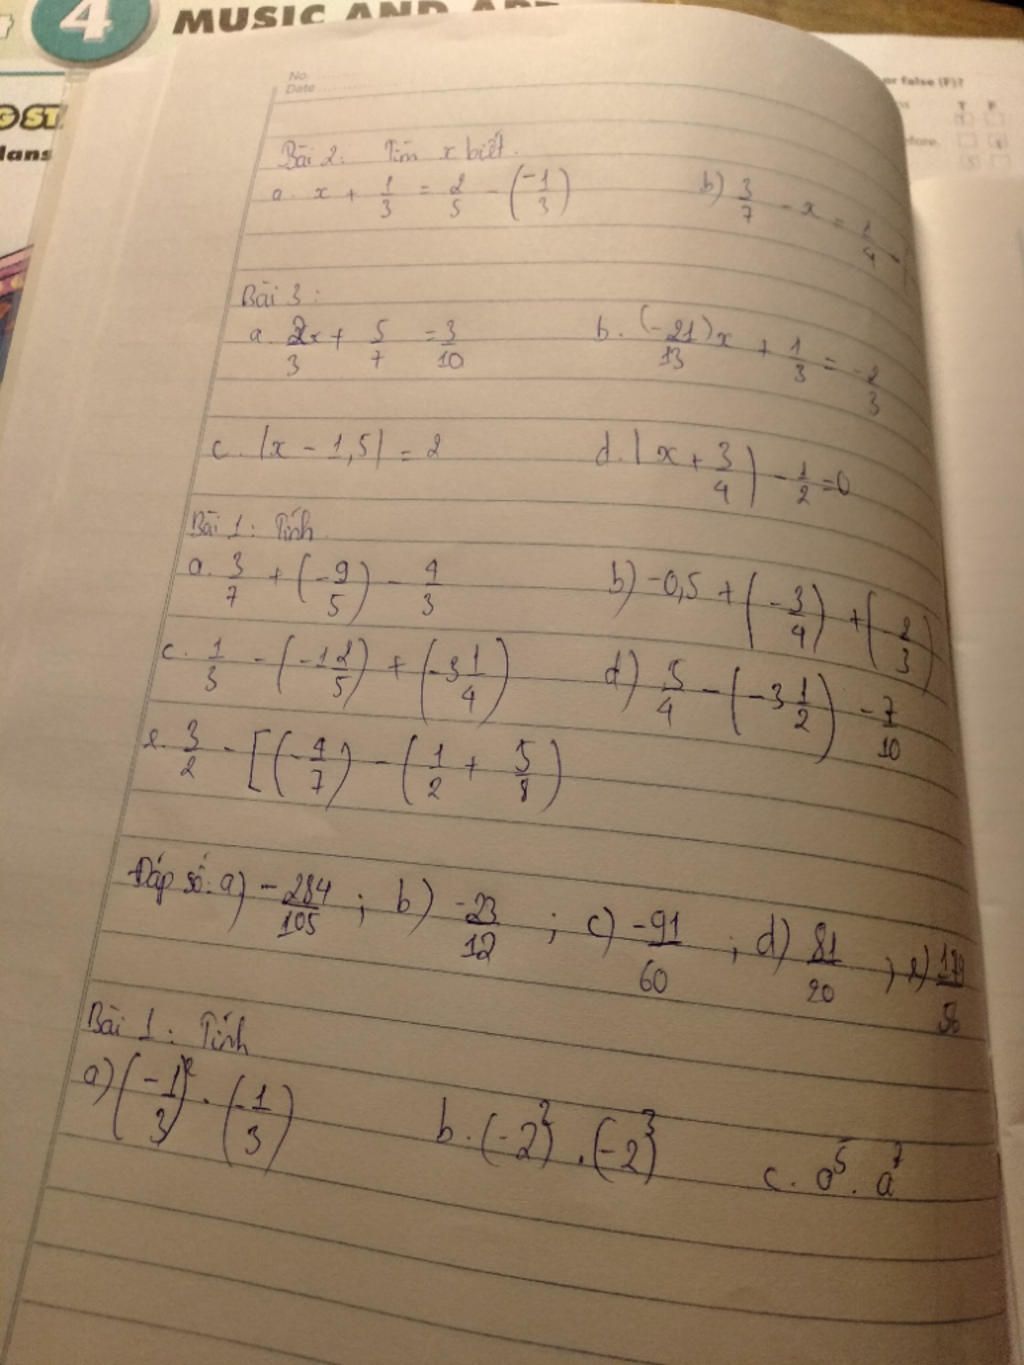 4 MUSIC AND
No.
Date
or false (F)?
T F
Bài 2: Tìm x biết.
a. x + 1/3 = 2/5 - (-1/3) b) 3/7 - x = 1/4 -
Bài 3:
a. 2/3 x + 5/7 = 3/10 b. (-21/13)x + 1/3 = -2/3
c. |x - 1,5| = 2 d. |x + 3/4| - 1/2 = 0
Bài 1: Tính
a. 3/7 + (-9/5) - 4/3 b) -0,5 + (-3/4) + (-2/3)
c. 1/3 - (-1 2/5) + (-3 1/4) d) 5/4 - (-3 1/2) - 7/10
e. 3/2 - [(-4/7) - (1/2 + 5/8)
Đáp số: a) -284/105 ; b) -23/12 ; c) -91/60 ; d) 81/20 ; e) 179/56
Bài 1: Tính
a) (-1/3)² . (-1/3) b. (-2)² . (-2)³ c. a⁵ . a⁷